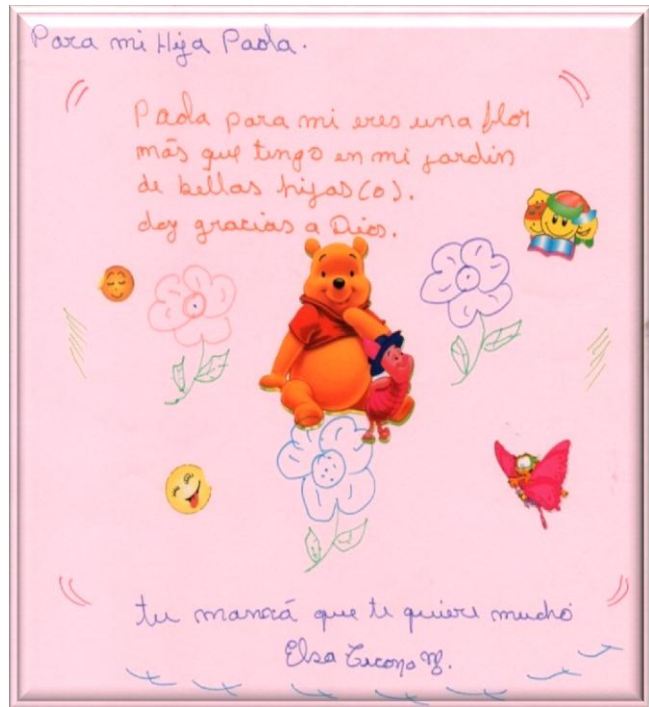 Para mi Hija Paola.
Paola para mi eres una flor
más que tengo en mi jardin
de bellas hijas(o).
doy gracias a Dios.
tu mamá que te quiere mucho
Elsa